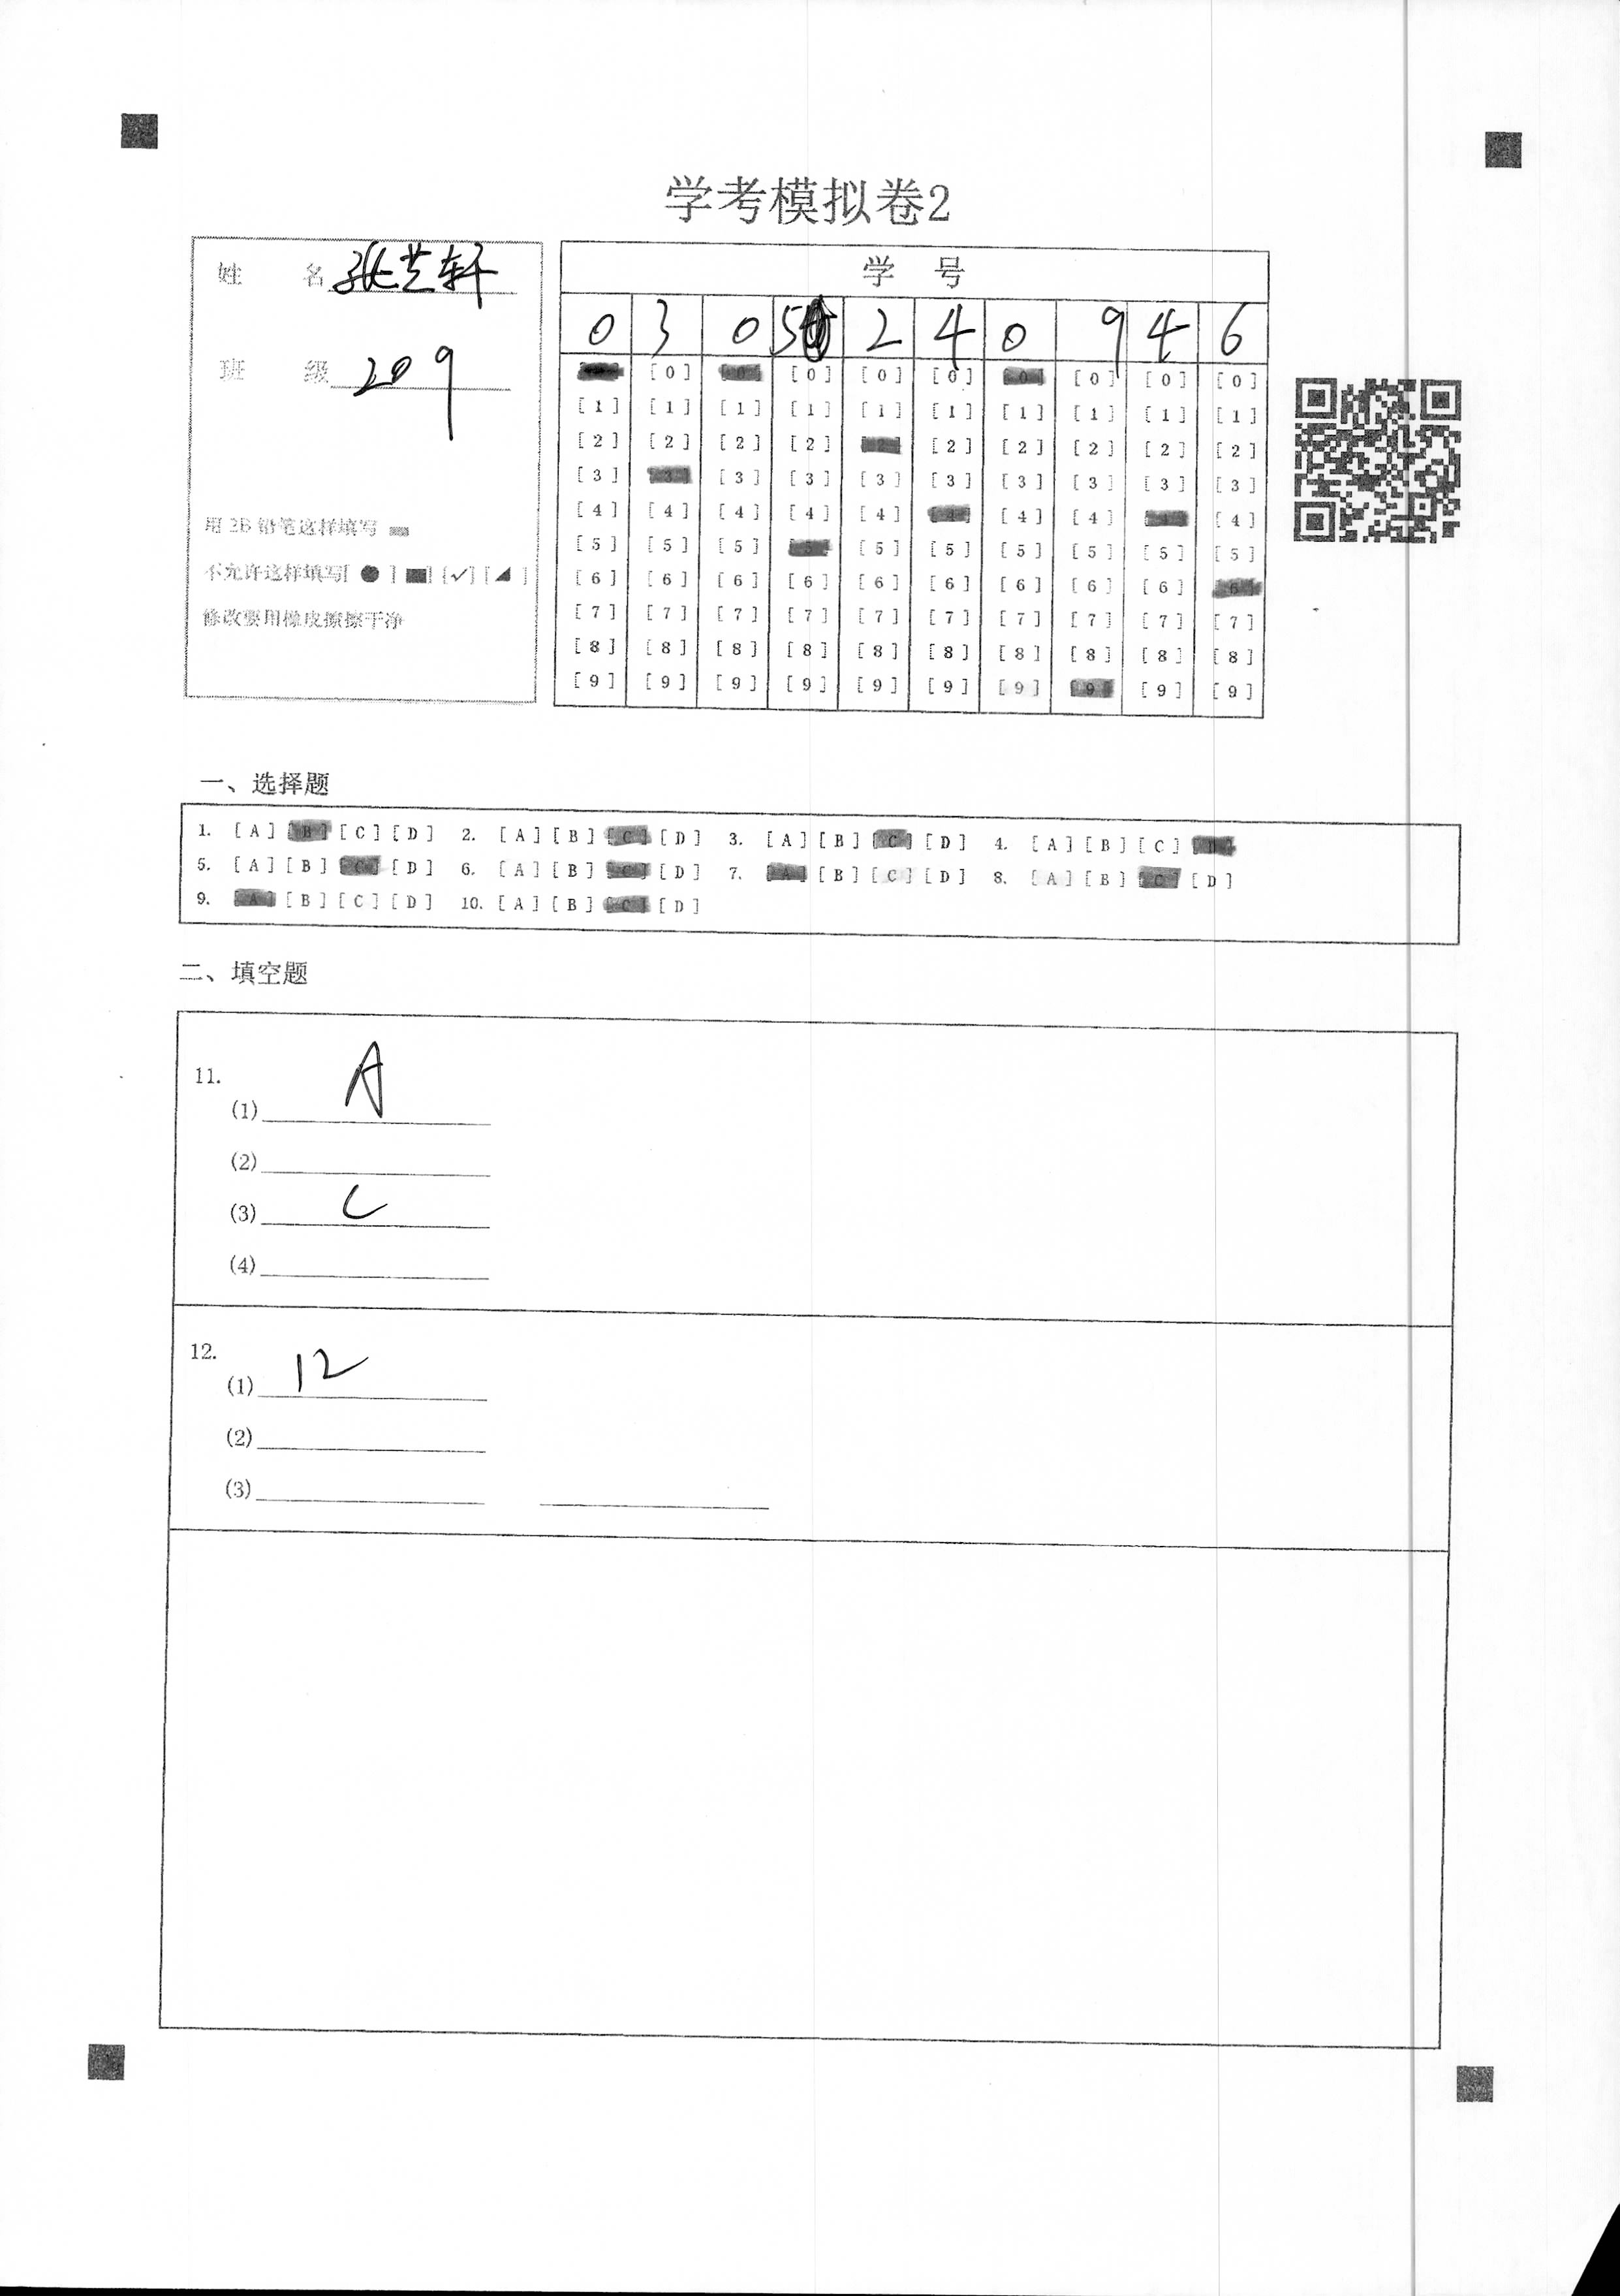 学考模拟卷2
姓 名 张芝轩
班 级 209
用 2B 铅笔这样填写
不允许这样填写[ ● ] [■] [✓] [◢ ]
修改要用橡皮擦擦干净
学 号
0 3 0 5 2 4 0 9 4 6
[0] [0] [0] [0] [0] [0] [0] [0] [0] [0]
[1] [1] [1] [1] [1] [1] [1] [1] [1] [1]
[2] [2] [2] [2] [2] [2] [2] [2] [2] [2]
[3] [3] [3] [3] [3] [3] [3] [3] [3] [3]
[4] [4] [4] [4] [4] [4] [4] [4] [4] [4]
[5] [5] [5] [5] [5] [5] [5] [5] [5] [5]
[6] [6] [6] [6] [6] [6] [6] [6] [6] [6]
[7] [7] [7] [7] [7] [7] [7] [7] [7] [7]
[8] [8] [8] [8] [8] [8] [8] [8] [8] [8]
[9] [9] [9] [9] [9] [9] [9] [9] [9] [9]
一、选择题
1. [A] [B] [C] [D] 2. [A] [B] [C] [D] 3. [A] [B] [C] [D] 4. [A] [B] [C] [D]
5. [A] [B] [C] [D] 6. [A] [B] [C] [D] 7. [A] [B] [C] [D] 8. [A] [B] [C] [D]
9. [A] [B] [C] [D] 10. [A] [B] [C] [D]
二、填空题
11.
(1) A
(2)
(3) C
(4)
12.
(1) 12
(2)
(3)